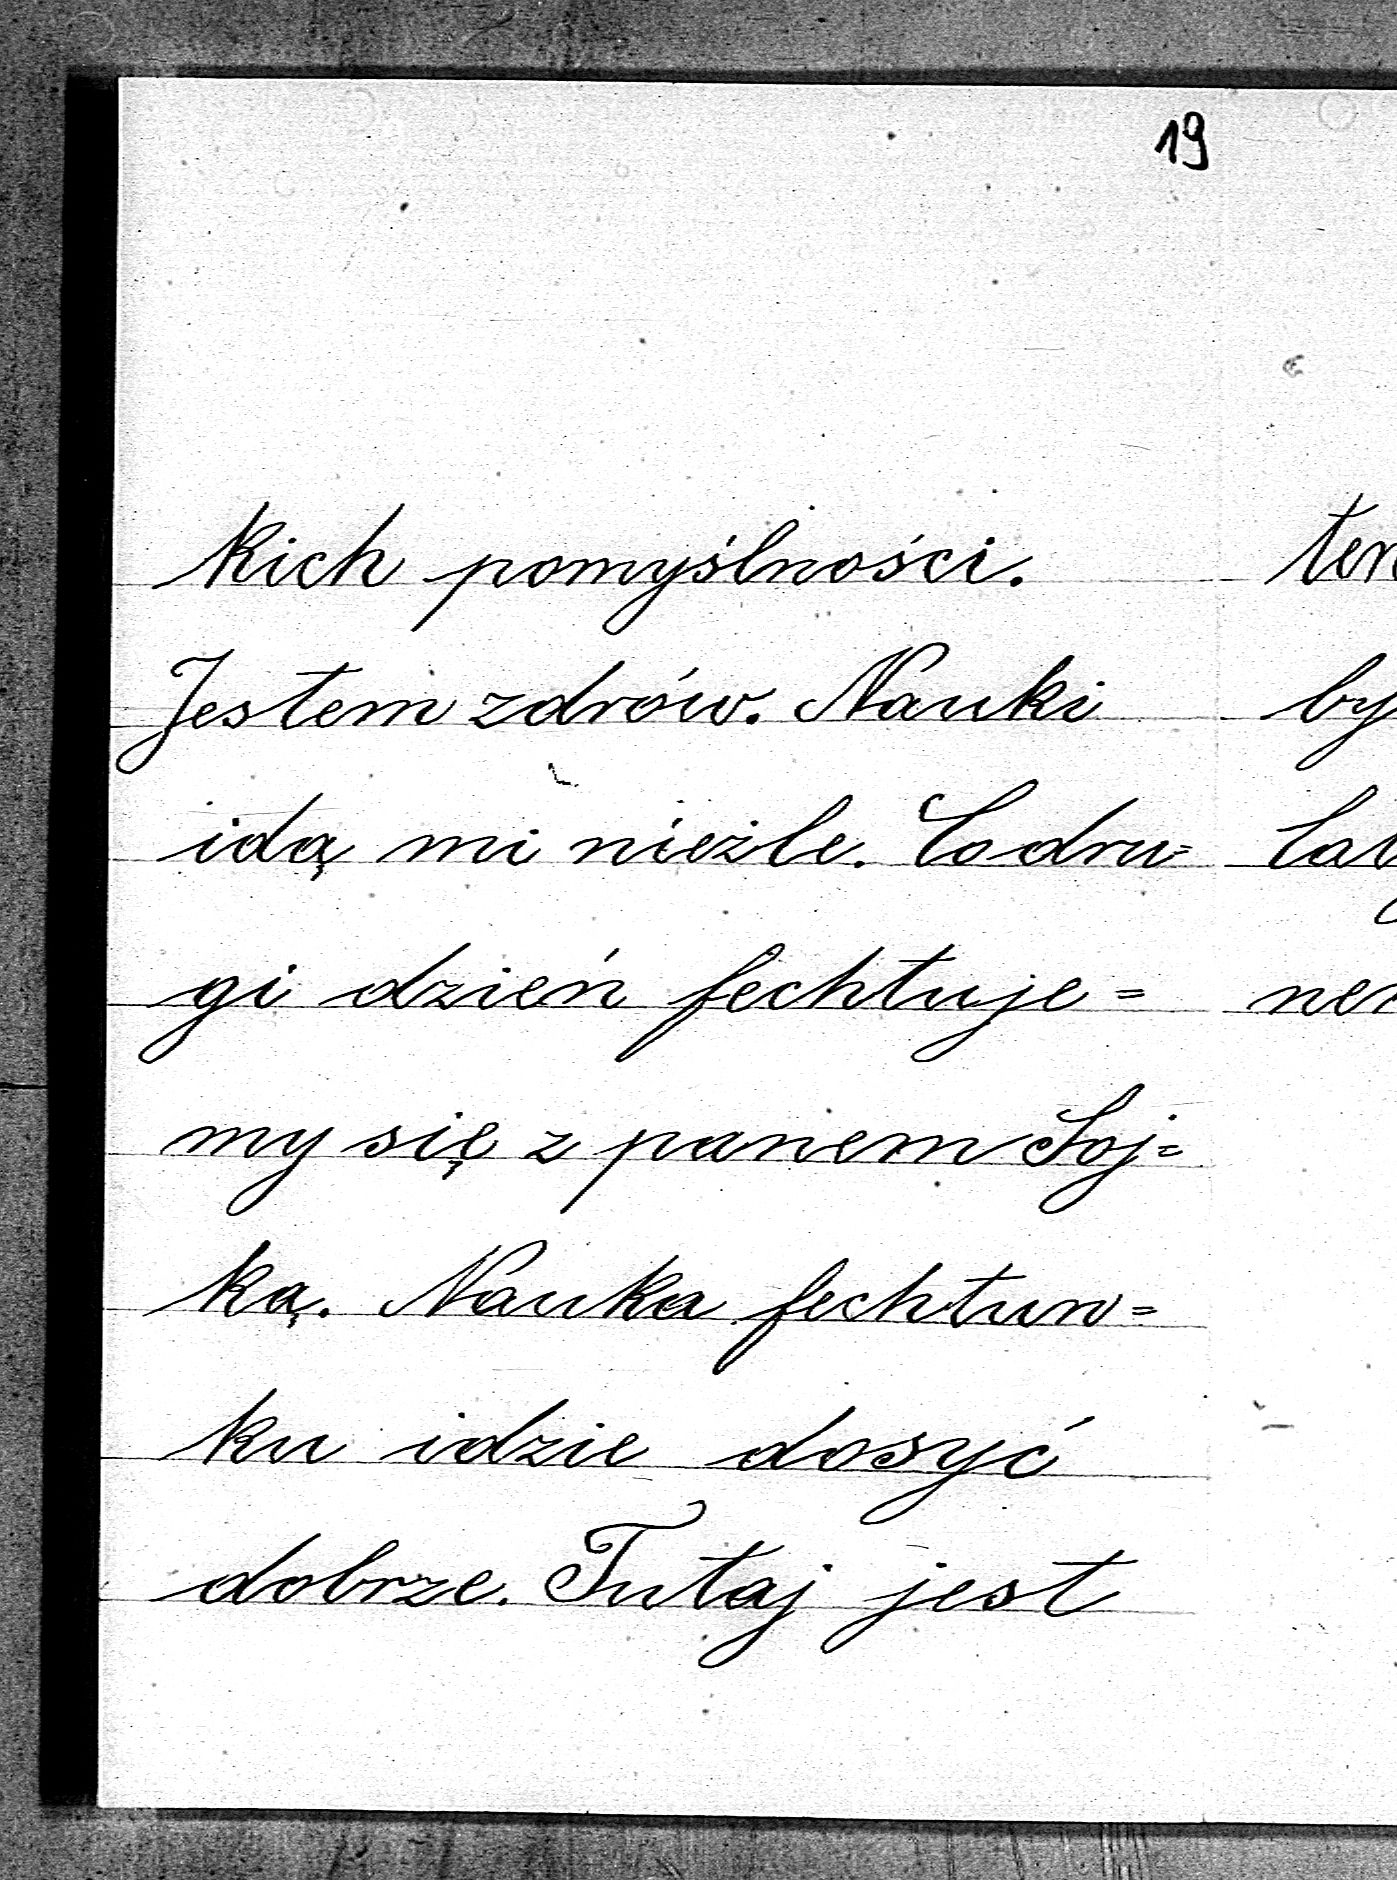 19
kich pomyślności.
Jestem zdrów. Nauki
idą mi nieźle. Codru=
gi dzień fechtuje=
my się z panem Soj=
ką. Nauka fechtun=
ku idzie dosyć
dobrze. Tutaj jest